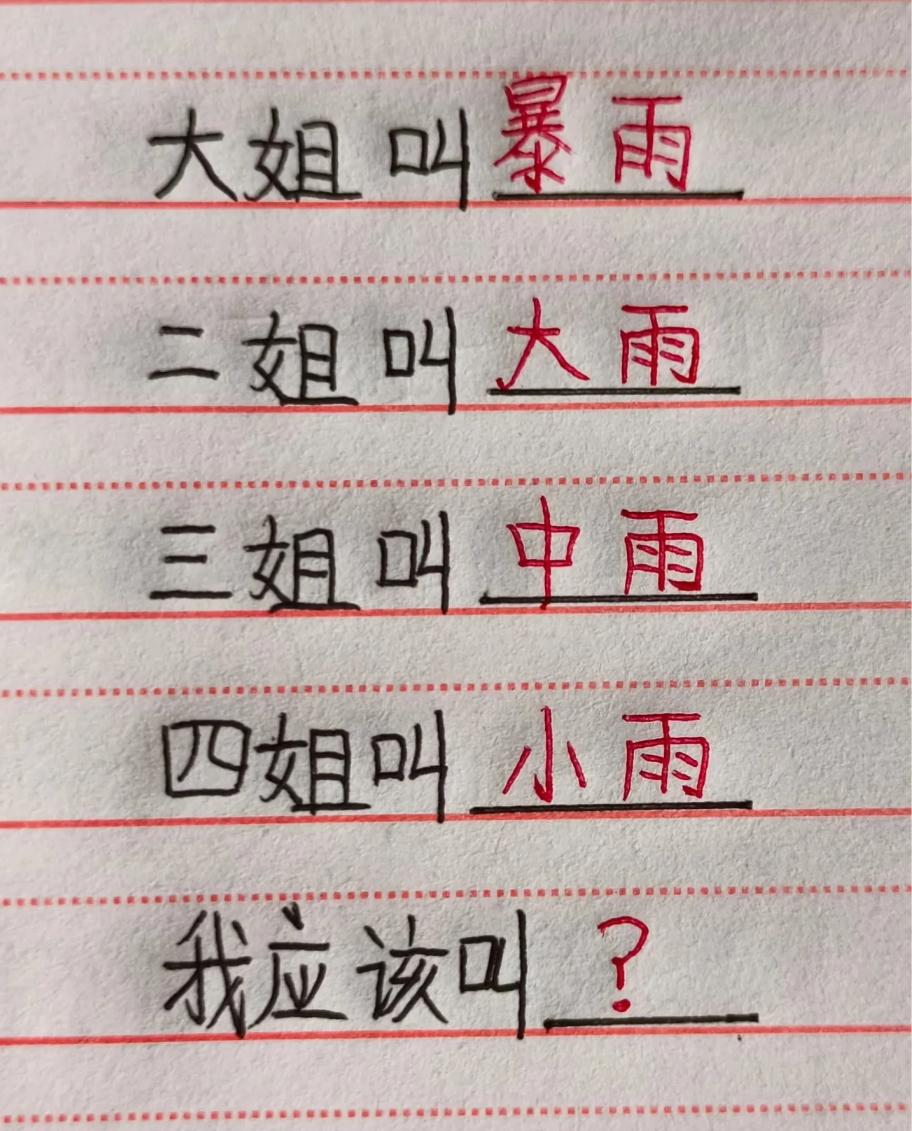 大姐叫暴雨
二姐叫大雨
三姐叫中雨
四姐叫小雨
我应该叫?